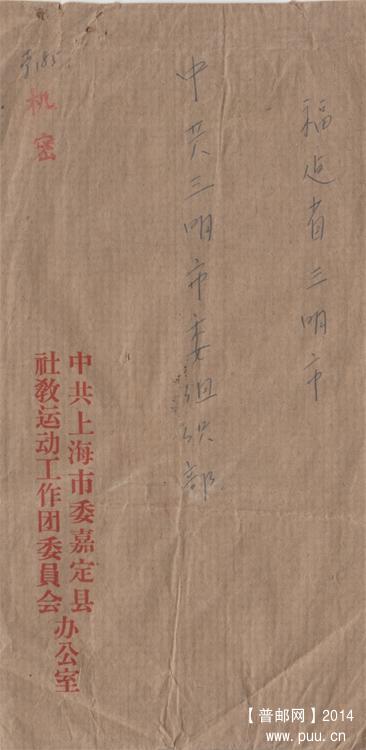 福建省三明市
中共三明市委组织部
字185
机密
中共上海市委嘉定县
社教运动工作团委員会
办公室
【普邮网】2014
www.puu.cn